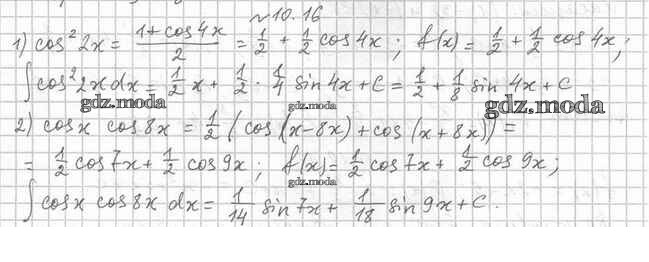 №10.16
1) cos² 2x = (1 + cos 4x)/2 = 1/2 + 1/2 cos 4x ; f(x) = 1/2 + 1/2 cos 4x ;
∫cos² 2x dx = 1/2 x + 1/2 · 1/4 sin 4x + C = 1/2 + 1/8 sin 4x + C
gdz.moda gdz.moda gdz.moda
2) cos x cos 8x = 1/2 (cos (x - 8x) + cos (x + 8x)) =
= 1/2 cos 7x + 1/2 cos 9x ; f(x) = 1/2 cos 7x + 1/2 cos 9x ;
gdz.moda
∫cos x cos 8x dx = 1/14 sin 7x + 1/18 sin 9x + C.